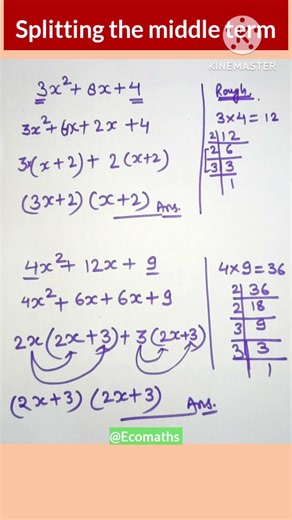 Splitting the middle term
Made with
KINEMASTER
3x²+8x+4
3x²+6x+2x+4
3x(x+2)+2(x+2)
(3x+2)(x+2) Ans.
Rough
3×4=12
2|12
2|6
3|3
1
4x²+12x+9
4x²+6x+6x+9
2x(2x+3)+3(2x+3)
(2x+3)(2x+3) Ans.
4×9=36
2|36
2|18
3|9
3|3
1
@Ecomaths